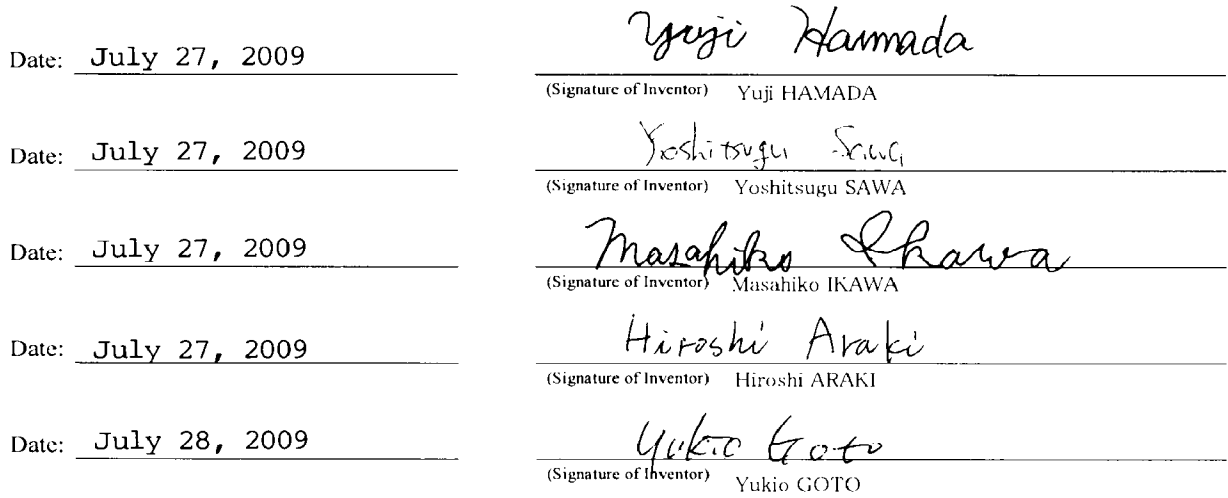 Date: July 27, 2009 Yuji Hamada
(Signature of Inventor) Yuji HAMADA
Date: July 27, 2009 Yoshitsugu Sawa
(Signature of Inventor) Yoshitsugu SAWA
Date: July 27, 2009 Masahiko Ikawa
(Signature of Inventor) Masahiko IKAWA
Date: July 27, 2009 Hiroshi Araki
(Signature of Inventor) Hiroshi ARAKI
Date: July 28, 2009 Yukio Goto
(Signature of Inventor) Yukio GOTO